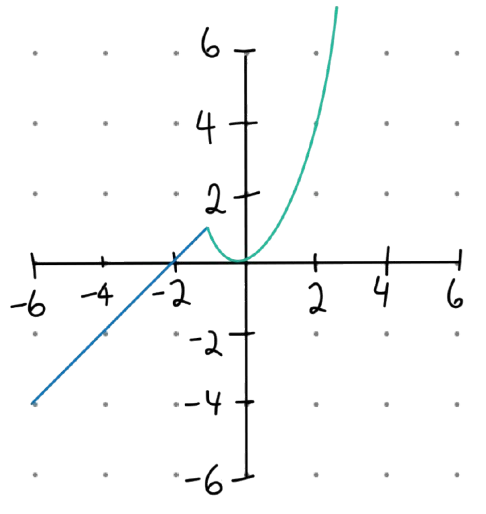 6
4
2
-6 -4 -2 2 4 6
-2
-4
-6